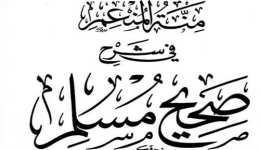 منة المنعم
في شرح
صحيح مسلم